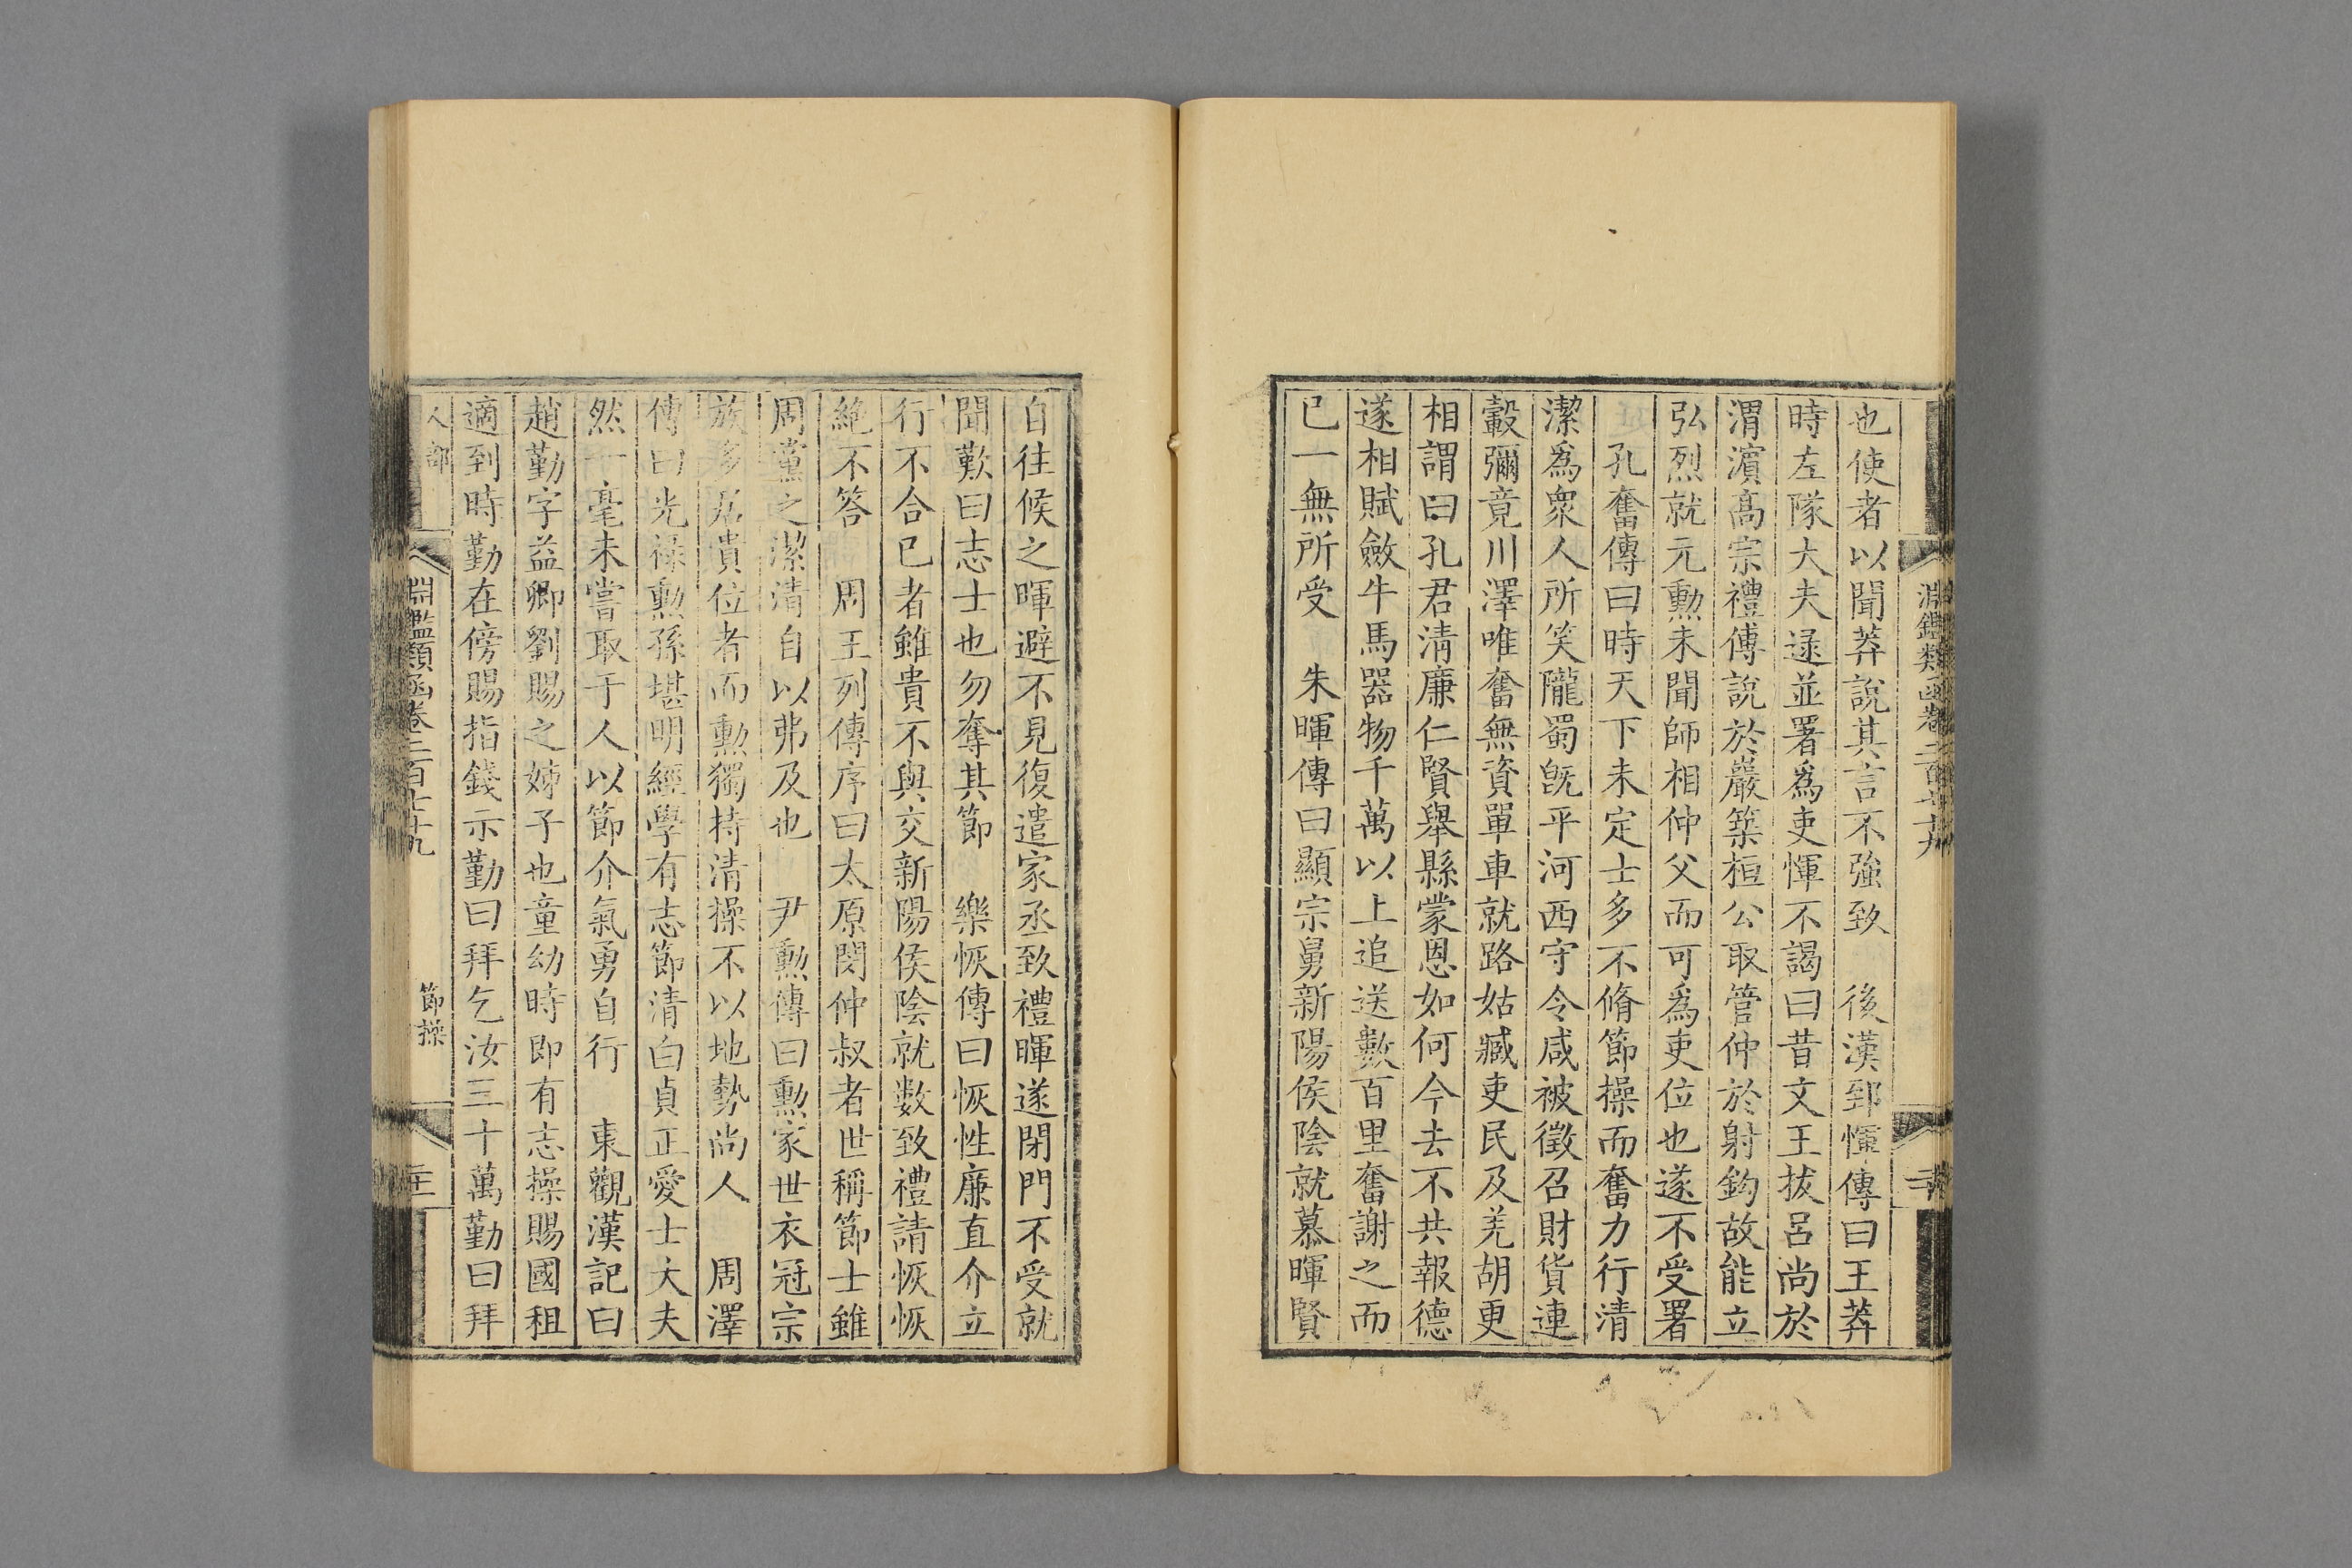 淵鑑類函卷二百七十九
二十
也使者以聞莽說其言不強致　後漢郅惲傳曰王莽
時左隊大夫逯並署爲吏惲不謁曰昔文王拔呂尚於
渭濵高宗禮傅說於巖築桓公取管仲於射鈎故能立
弘烈就元勲未聞師相仲父而可爲吏位也遂不受署
孔奮傳曰時天下未定士多不脩節操而奮力行清
潔爲衆人所笑隴蜀旣平河西守令咸被徵召財貨連
轂彌竟川澤唯奮無資單車就路姑臧吏民及羌胡更
相謂曰孔君清廉仁賢舉縣蒙恩如何今去不共報德
遂相賦斂牛馬器物千萬以上追送數百里奮謝之而
已一無所受　朱暉傳曰顯宗舅新陽侯陰就慕暉賢
自往候之暉避不見復遣家丞致禮暉遂閉門不受就
聞歎曰志士也勿奪其節　樂恢傳曰恢性廉直介立
行不合已者雖貴不與交新陽侯陰就數致禮請恢恢
絶不答　周王列傳序曰太原閔仲叔者世稱節士雖
周黨之潔清自以弗及也　尹勲傳曰勲家世衣冠宗
族多居貴位者而勲獨持清操不以地勢尚人　周澤
傳曰光祿勲孫堪明經學有志節清白貞正愛士大夫
然一毫未嘗取于人以節介氣勇自行　東觀漢記曰
趙勤字益卿劉賜之姊子也童幼時即有志操賜國租
適到時勤在傍賜指錢示勤曰拜乞汝三十萬勤曰拜
人部
淵鑑類函卷二百七十九
節操